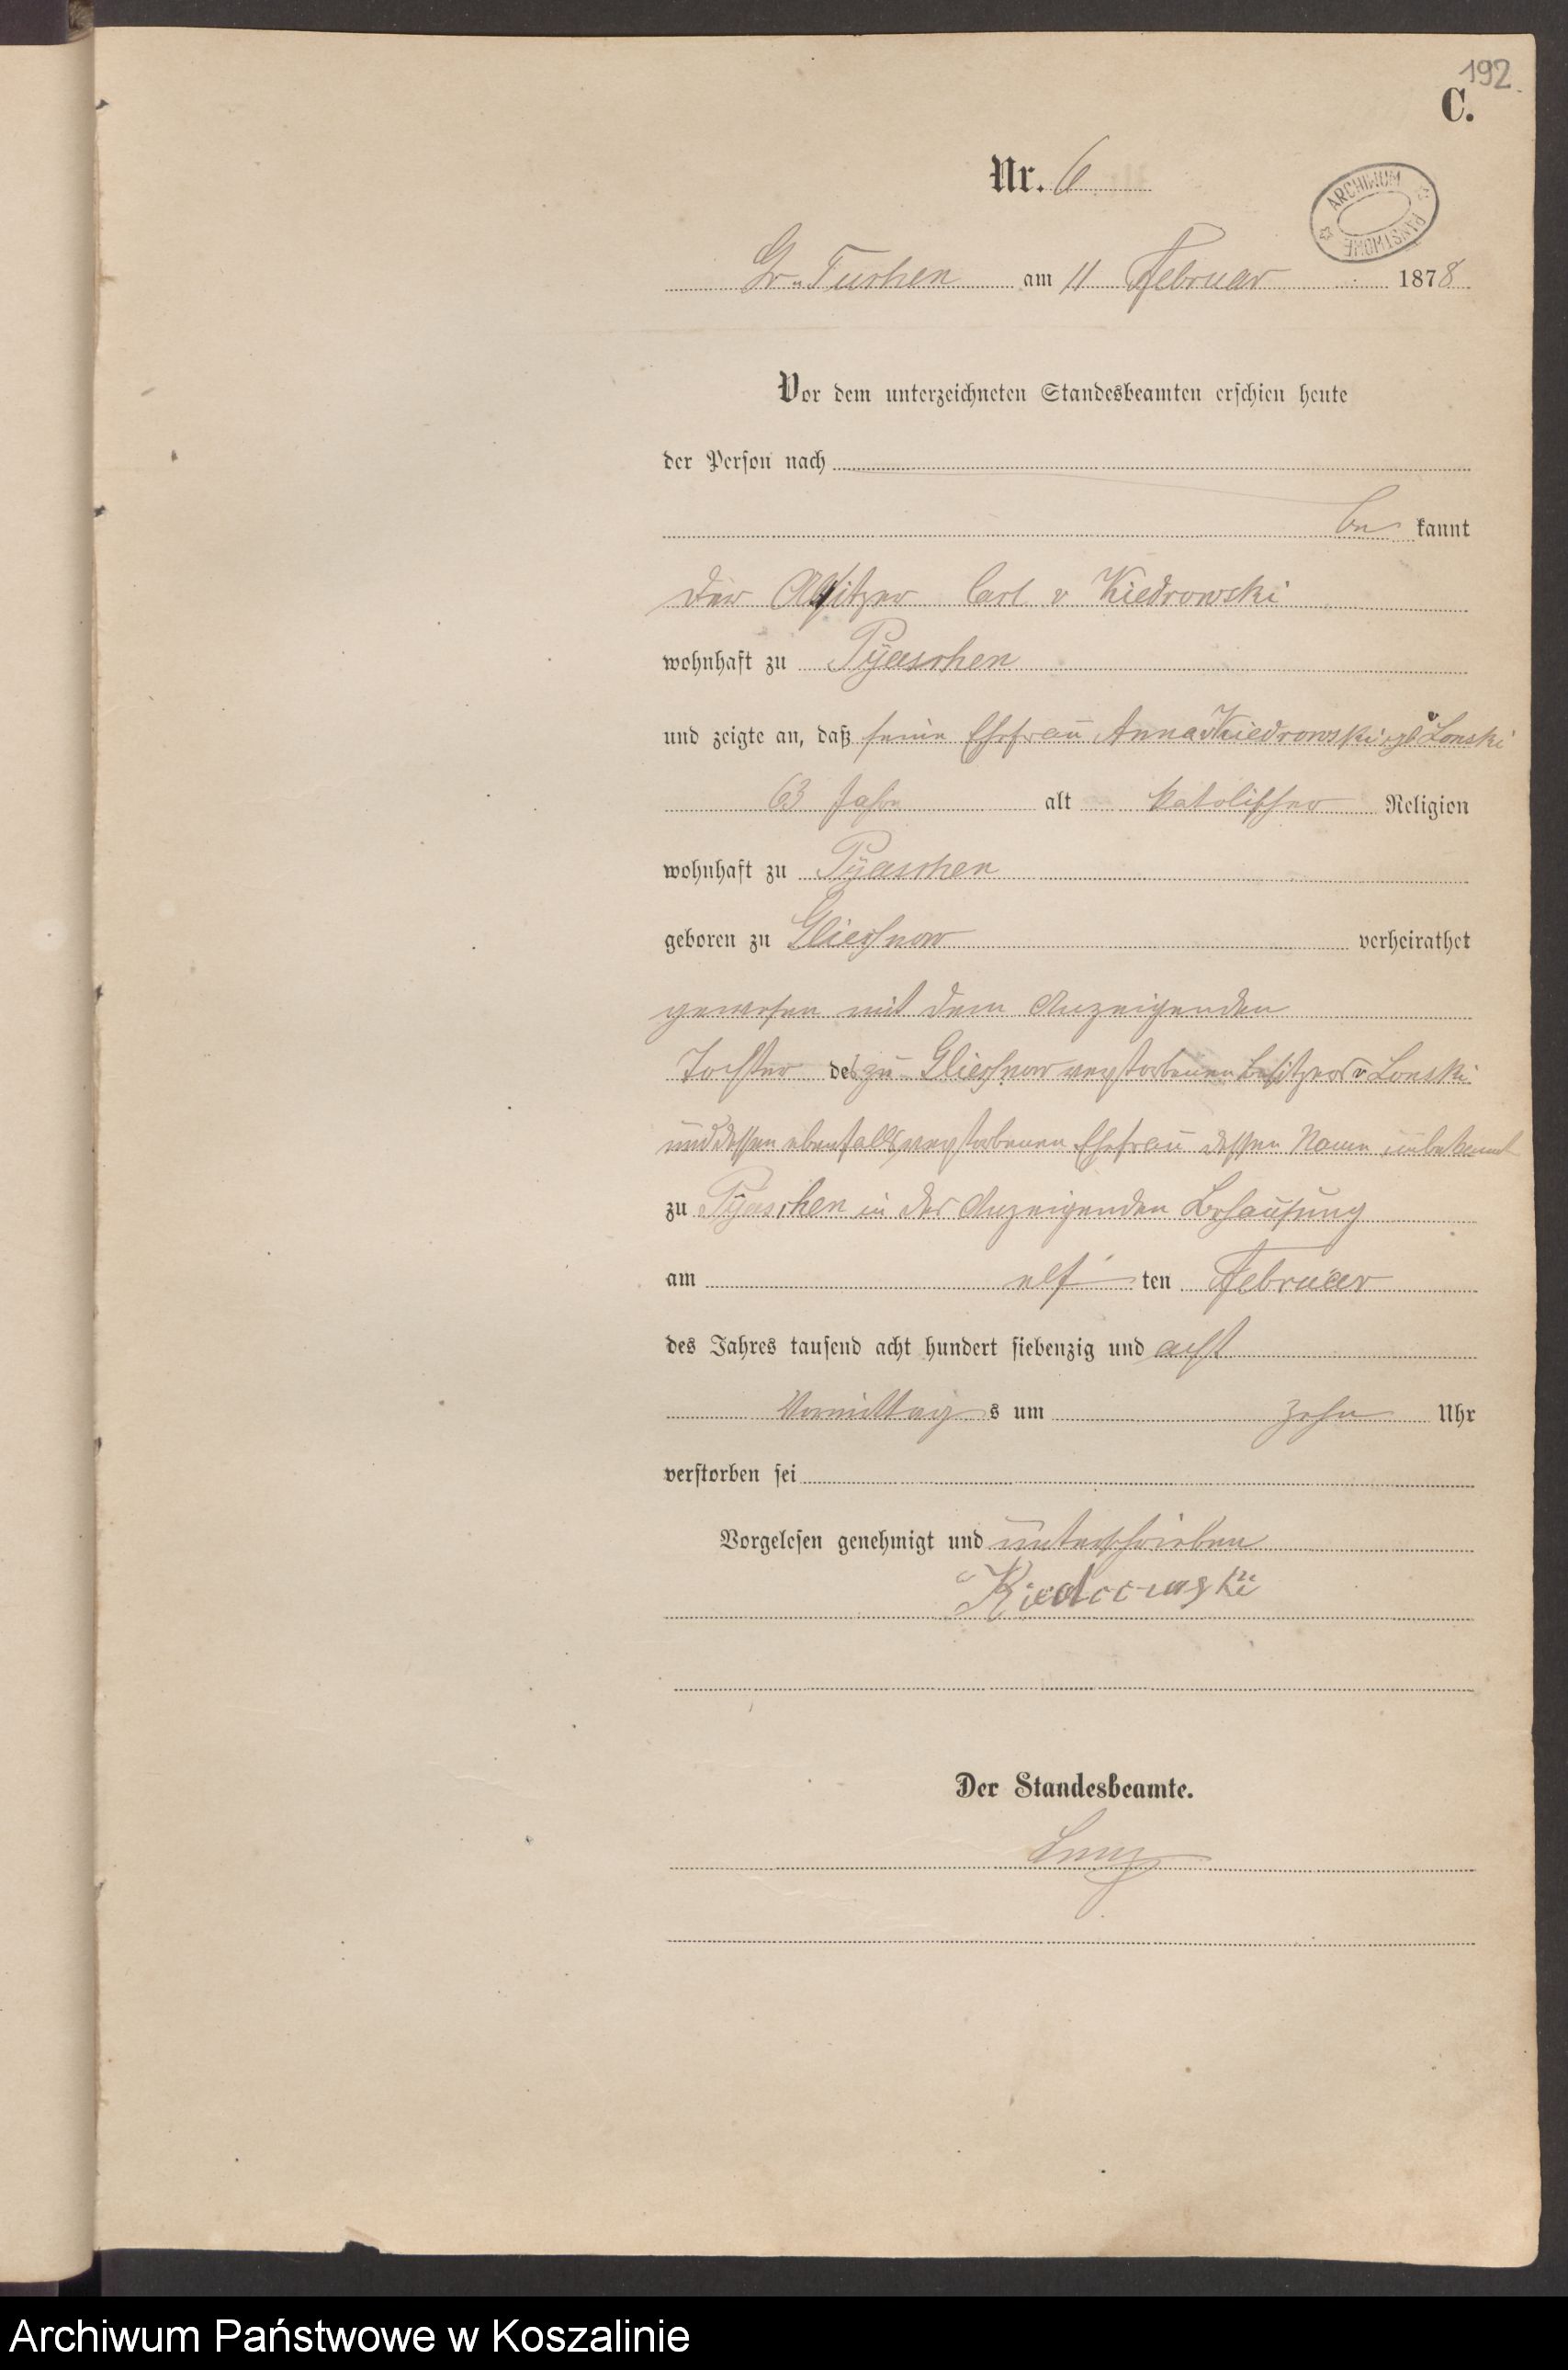 192.
C.
Nr. 6
ARCHIWUM PAŃSTWOWE
Gr. Tuchen am 11 Februar 1878
Vor dem unterzeichneten Standesbeamten erschien heute
der Person nach
be kannt
der Altsitzer Carl v Kiedrowski
wohnhaft zu Pyaschen
und zeigte an, daß seine Ehefrau Anna v Kiedrowski v Lonski
63 Jahre alt katolischer Religion
wohnhaft zu Pyaschen
geboren zu Gliessnow verheirathet
gewesen mit dem Anzeigenden
Tochter des zu Gliessnow verstorbenen Besitzers v Lonski
und dessen ebenfalls verstorbenen Ehefrau dessen Name unbekannt
zu Pyaschen in des Anzeigenden Behausung
am elf ten Februar
des Jahres tausend acht hundert siebenzig und acht
Vormittag s um zehn Uhr
verstorben sei
Vorgelesen genehmigt und unterschrieben
Kiedrowski
Der Standesbeamte.
Archiwum Państwowe w Koszalinie